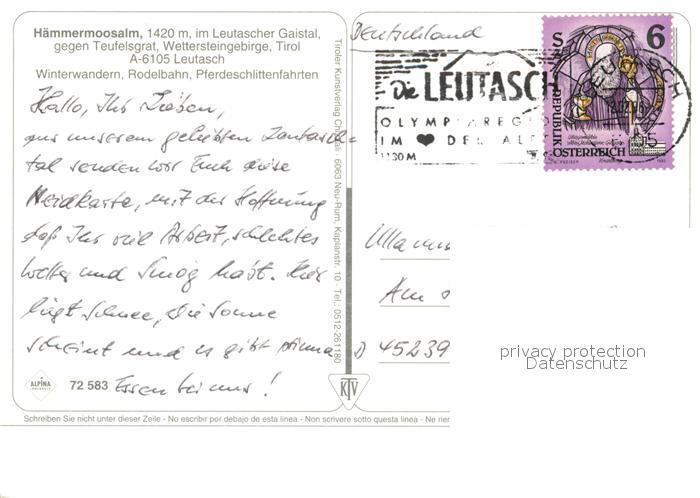 Hämmermoosalm, 1420 m, im Leutascher Gaistal,
gegen Teufelsgrat, Wettersteingebirge, Tirol
A-6105 Leutasch
Winterwandern, Rodelbahn, Pferdeschlittenfahrten
Hallo, Ihr Lieben,
aus unserem geliebten Leutasch-
tal senden wir Euch diese
Neidkarte, mit der Hoffnung
daß Ihr viel Arbeit, schlechtes
Wetter und Smog habt. Hier
liegt Schnee, die Sonne
scheint und es gibt prima
Essen bei uns!
ALPINA
72 583
Tiroler Kunstverlag 6063 Neu-Rum, Kaplanstr. 10 - Tel.: 0512-261180
KTV
Deutschland
Die LEUTASCH
OLYMPIAREGI
IM ❤ DER AL
1130 M
S 6
REPUBLIK
ÖSTERREICH
Ulla
Am
D 45239
privacy protection
Datenschutz
Schreiben Sie nicht unter dieser Zeile - No escribir por debajo de esta linea - Non scrivere sotto questa linea - Ne